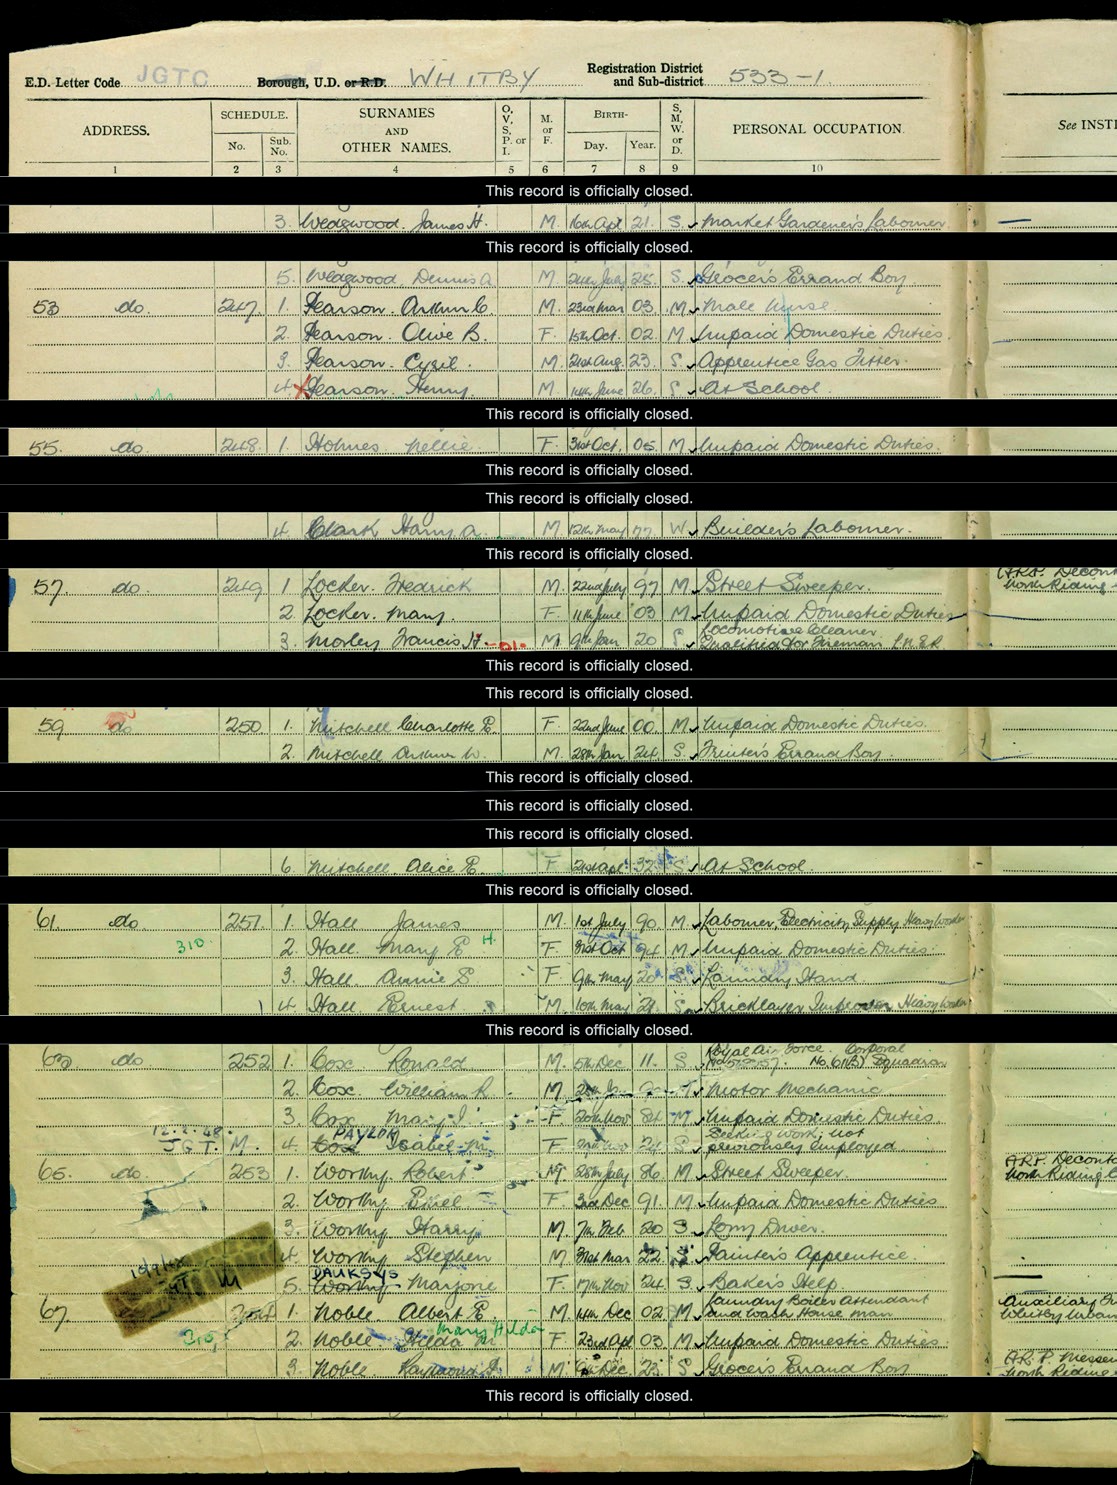 E.D. Letter Code JGTC Borough, U.D. or R.D. WHITBY Registration District and Sub-district 533-1.
ADDRESS. SCHEDULE. No. Sub. No. SURNAMES AND OTHER NAMES. O, V, S, P. or I. M. or F. BIRTH- Day. Year. S, M, W, or D. PERSONAL OCCUPATION. See INST
1 2 3 4 5 6 7 8 9 10
This record is officially closed.
3. Wedgwood. James H. M. 16th Apl 21. S. Market Gardener's Labourer
This record is officially closed.
5. Wedgwood Dennis A M. 24th July 25. S. Grocer's Errand Boy
53 do. 247 1. Pearson. Arthur C. M. 23rd Mar 03. M. Male Nurse.
2. Pearson. Olive B. F. 15th Oct. 02 M. Unpaid Domestic Duties
3. Pearson. Cyril. M. 21st Aug. 23. S. Apprentice Gas Fitter.
4. Pearson. Henry. M. 14th June 26. S. At School.
This record is officially closed.
55. do. 248. 1. Holmes Nellie F. 31st Oct. 05 M. Unpaid Domestic Duties.
This record is officially closed.
This record is officially closed.
4. Clark Harry A. M. 12th May 77 W. Builder's Labourer.
This record is officially closed.
57. do. 249 1 Locker. Fredrick M. 22nd July 97 M. Street Sweeper. A.R.P. Decont North Riding
2. Locker. Mary. F. 11th June 03 M. Unpaid Domestic Duties
3. Morley Francis. H. M. 9th Jan 20 S. Locomotive Cleaner Qualified for Fireman L.N.E.R.
This record is officially closed.
This record is officially closed.
59 do 250 1. Mitchell Charlotte E. F. 22nd June 00. M. Unpaid Domestic Duties.
2. Mitchell Arthur W M. 28th Jan 24. S. Printer's Errand Boy.
This record is officially closed.
This record is officially closed.
This record is officially closed.
6. Mitchell Alice E. F. 21st Apl 32. S. At School.
This record is officially closed.
61. do 251. 1. Hall James M. 1st July 90. M. Labourer, Electricity Supply Heavy Worker
310. 2. Hall. Mary E H. F. 31st Oct 94 M. Unpaid Domestic Duties.
3. Hall. Annie S. F. 9th May 20 S. Laundry Hand
4. Hall Ernest M. 10th May 21. S. Bricklayer Improver Heavy Worker
This record is officially closed.
63 do 252 1. Cox Ronald M. 5th Dec 11. S Royal Air Force. Corporal Squadron
2. Cox William R. M. Motor Mechanic
3. Cox Mary F. 20th Nov 84 M. Unpaid Domestic Duties
JGT. M. 4. Cox PAYLOR Isabel M. F. Seeking work, not previously employed
65. do 253 1. Worthy Robert M. 25th July 86 M. Street Sweeper. A.R.P. Deconta North Riding
2. Worthy Ethel F. 3rd Dec 91. M. Unpaid Domestic Duties
3. Worthy Harry. M. 7th Feb 20 S. Lorry Driver.
4. Worthy Stephen M. 31st Mar 22. S. Painter's Apprentice.
M 5. Worthy DAUKSYS Marjorie F. 17th Nov. 24. S. Baker's Help.
67 254 1. Noble Albert E. M. 14th Dec 02 M. Laundry Boiler Attendant and Wash House man Auxiliary Whitby Urban
2. Noble. Hilda M. Mary Hilda F. 23rd Apl 03 M. Unpaid Domestic Duties.
3. Noble. Raymond M. 9th Dec. 23. S. Grocer's Errand Boy. A.R.P. Messen North Riding
This record is officially closed.